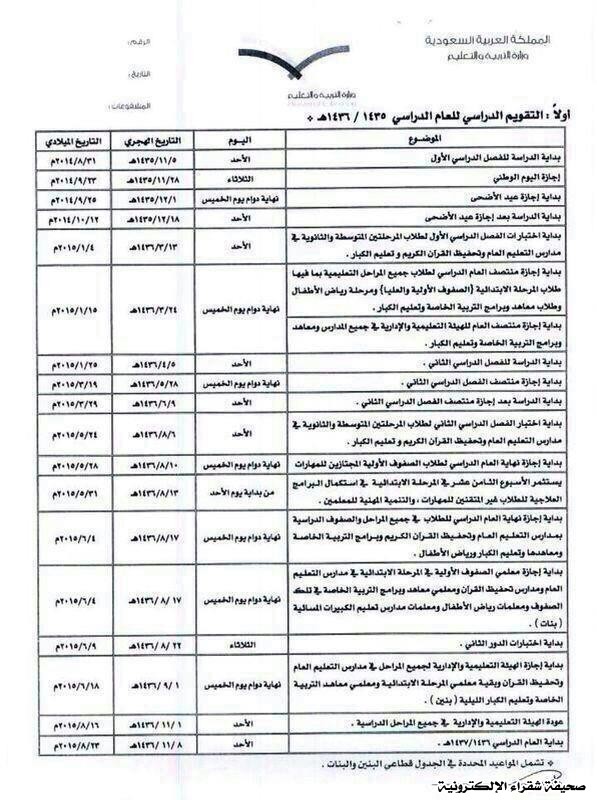 المملكة العربية السعودية
وزارة التربية والتعليم
وزارة التربية والتعليم
الرقم :
التاريخ :
المشفوعات :
أولاً : التقويم الدراسي للعام الدراسي ١٤٣٥ / ١٤٣٦هـ *
الموضوع اليوم التاريخ الهجري التاريخ الميلادي
بداية الدراسة للفصل الدراسي الأول الأحد ١٤٣٥/١١/٥هـ ٢٠١٤/٨/٣١م
إجازة اليوم الوطني الثلاثاء ١٤٣٥/١١/٢٨هـ ٢٠١٤/٩/٢٣م
بداية إجازة عيد الأضحى نهاية دوام يوم الخميس ١٤٣٥/١٢/١هـ ٢٠١٤/٩/٢٥م
بداية الدراسة بعد إجازة عيد الأضحى الأحد ١٤٣٥/١٢/١٨هـ ٢٠١٤/١٠/١٢م
بداية اختبارات الفصل الدراسي الأول لطلاب المرحلتين المتوسطة والثانوية في
مدارس التعليم العام وتحفيظ القرآن الكريم و تعليم الكبار . الأحد ١٤٣٦/٣/١٣هـ ٢٠١٥/١/٤م
بداية إجازة منتصف العام الدراسي لطلاب جميع المراحل التعليمية بما فيها
طلاب المرحلة الابتدائية {الصفوف الأولية والعليا} ومرحلة رياض الأطفال
وطلاب معاهد وبرامج التربية الخاصة وتعليم الكبار . نهاية دوام يوم الخميس ١٤٣٦/٣/٢٤هـ ٢٠١٥/١/١٥م
بداية إجازة منتصف العام للهيئة التعليمية والإدارية في جميع المدارس ومعاهد
وبرامج التربية الخاصة وتعليم الكبار .
بداية الدراسة للفصل الدراسي الثاني . الأحد ١٤٣٦/٤/٥هـ ٢٠١٥/١/٢٥م
بداية إجازة منتصف الفصل الدراسي الثاني . نهاية دوام يوم الخميس ١٤٣٦/٥/٢٨هـ ٢٠١٥/٣/١٩م
بداية الدراسة بعد إجازة منتصف الفصل الدراسي الثاني . الأحد ١٤٣٦/٦/٩هـ ٢٠١٥/٣/٢٩م
بداية اختبار الفصل الدراسي الثاني لطلاب المرحلتين المتوسطة والثانوية في
مدارس التعليم العام وتحفيظ القرآن الكريم و تعليم الكبار . الأحد ١٤٣٦/٨/٦هـ ٢٠١٥/٥/٢٤م
بداية إجازة نهاية العام الدراسي لطلاب الصفوف الأولية المجتازين للمهارات نهاية دوام يوم الخميس ١٤٣٦/٨/١٠هـ ٢٠١٥/٥/٢٨م
يستثمر الأسبوع الثامن عشر في المرحلة الابتدائية في استكمال البرامج
العلاجية للطلاب غير المتقنين للمهارات ، والتنمية المهنية للمعلمين . من بداية يوم الأحد ١٤٣٦/٨/١٣هـ ٢٠١٥/٥/٣١م
بداية إجازة نهاية العام الدراسي للطلاب في جميع المراحل والصفوف الدراسية
بمدارس التعليم العام وتحفيظ القرآن الكريم وبرامج التربية الخاصة
ومعاهدها وتعليم الكبار ورياض الأطفال . نهاية دوام يوم الخميس ١٤٣٦/٨/١٧هـ ٢٠١٥/٦/٤م
بداية إجازة معلمي الصفوف الأولية في المرحلة الابتدائية في مدارس التعليم
العام ومدارس تحفيظ القرآن ومعلمي معاهد وبرامج التربية الخاصة في تلك
الصفوف ومعلمات رياض الأطفال ومعلمات مدارس تعليم الكبيرات المسائية
( بنات ) . نهاية دوام يوم الخميس ١٤٣٦/ ٨/ ١٧هـ ٢٠١٥/٦/٤م
بداية اختبارات الدور الثاني . الثلاثاء ١٤٣٦/ ٨/ ٢٢هـ ٢٠١٥/٦/٩م
بداية إجازة الهيئة التعليمية والإدارية لجميع المراحل في مدارس التعليم العام
وتحفيظ القرآن وبقية معلمي المرحلة الابتدائية ومعلمي معاهد التربية
الخاصة وتعليم الكبار الليلية ( بنين ) . نهاية دوام يوم الخميس ١٤٣٦/ ٩/ ١هـ ٢٠١٥/٦/١٨م
عودة الهيئة التعليمية والإدارية في جميع المراحل الدراسية . الأحد ١٤٣٦/ ١١/ ١هـ ٢٠١٥/٨/١٦م
بداية العام الدراسي ١٤٣٧/١٤٣٦هـ . الأحد ١٤٣٦/ ١١/ ٨هـ ٢٠١٥/٨/٢٣م
* تشمل المواعيد المحددة في الجدول قطاعي البنين والبنات .
صحيفة شقراء الإلكترونية